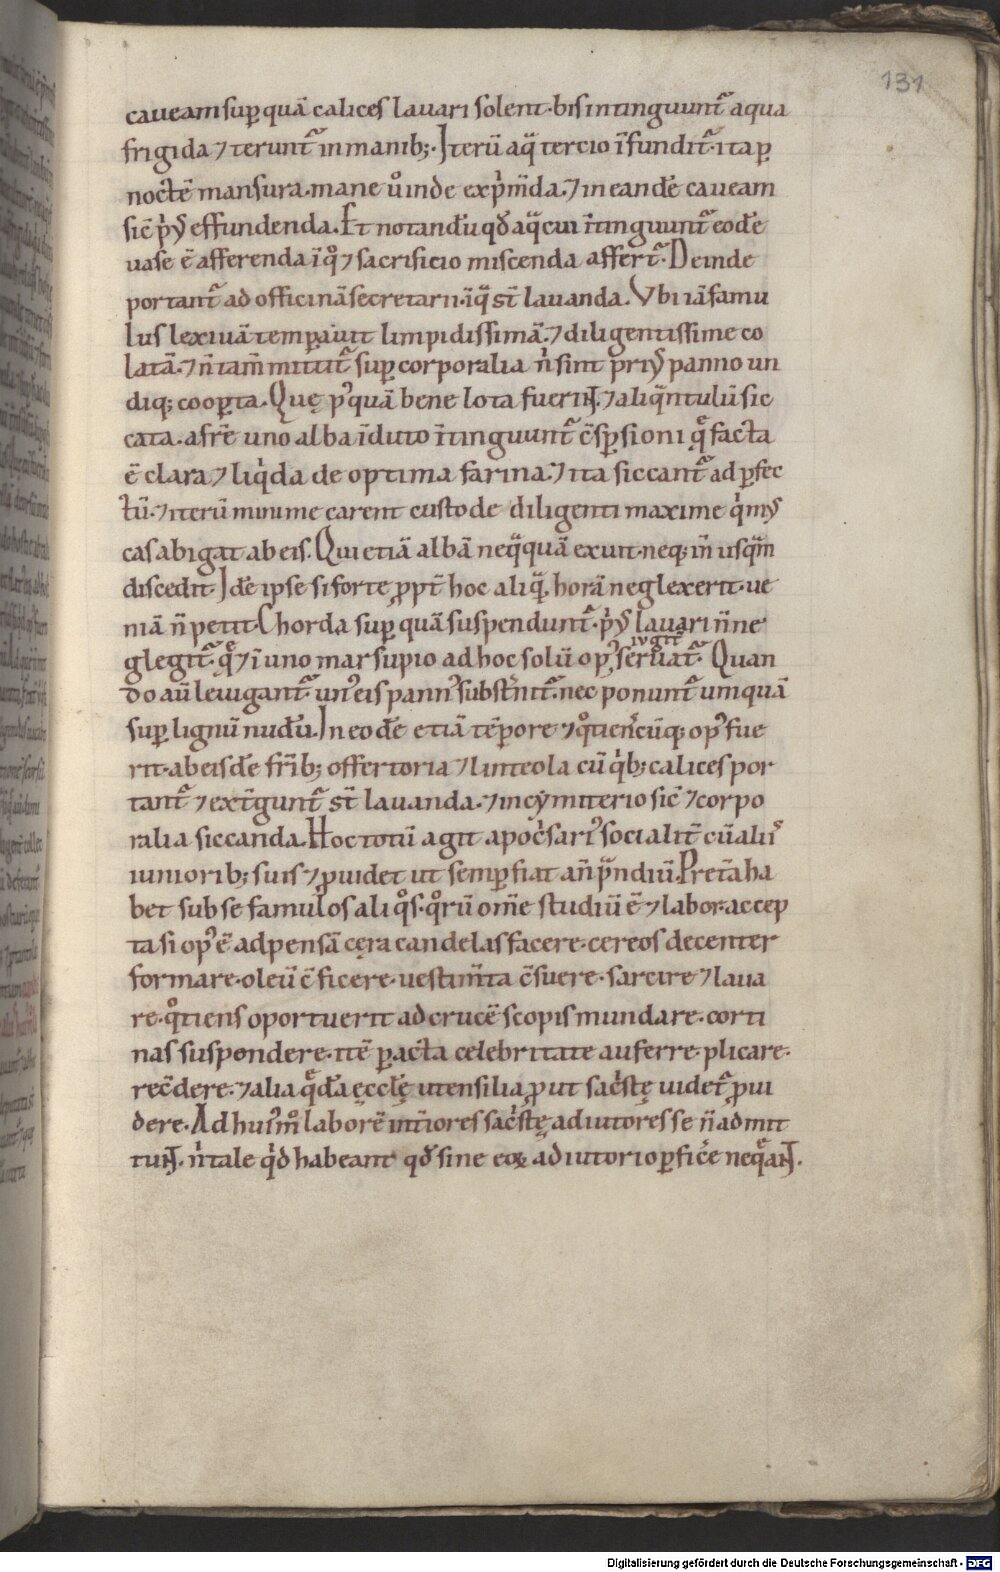 131
caveam sup quā calices lavari solent. bis intinguunt᷑ aqua
frigida ⁊ terunt᷑ in manib;. Iterū aq̄ tercio īfundit᷑. ita ꝑ
noctē mansura. mane ů inde exp̍m̄da. ⁊ in eandē caveam
sic̄ p̍ꝰ effundenda. Et notandū qđ aq̄ cui ītinguunt᷑ eodē
vase ē afferenda ī q̊ ⁊ sacrificio miscenda affert᷑. Deinde
portant᷑ ad officinā secretarii. ī q̄ st̄ lavanda. Vbi iā famu
lus lexivā temperavit limpidissimā. ⁊ diligentissime co
latā. ⁊ n̄ tam̄ mittit᷑ sup corporalia n̍ sint priꝰ panno un
diq; coopta. Quę pꝰquā bene lota fuerint. ⁊ aliq̄ntulū sic
cata. a fr̄e uno alba īduto ītinguunt᷑ c̄spsioni q̄ facta
ē clara ⁊ liq̍da de optima farina. ⁊ ita siccant᷑ ad ꝑfec
tū. ⁊ iterū minime carent custode diligenti maxime q̍ mꝰ
cas abigat ab eis. Qui etiā albā neq̄quā exuit. neq; īn usq̄m
discedit. Idē ipse si forte ꝓpt̄ hoc aliq̄ horā neglexerit. ve
niā n̄ petit. Chorda sup quā suspendunt᷑. p̍ꝰ lavari n̄ ne
glegit᷑. q̄ ⁊ ī uno marsupio ad hoc solū opꝰ servat᷑. Quan
do aū levigant᷑ unꝰ eis pannꝰ subst̄nit᷑. nec ponunt᷑ umquā
sup lignū nudū. In eodē etiā tēpore ⁊ q̊tienscūq; opꝰ fue
rit. ab eisdē fr̄ib; offertoria ⁊ linteola cū q̍b; calices por
tant᷑ ⁊ extgunt᷑ st̄ lavanda. ⁊ in cymiterio sic̄ ⁊ corpo
ralia siccanda. Hoc totū agit apoc̍sariꝰ socialit̄ cū aliis
iuniorib; suis ⁊ ꝓvidet ut semp fiat an̄ p̄ndiū. Pretā ha
bet sub se famulos aliq̊s. q̊rū om̄e studiū ē ⁊ labor. accep
ta si opꝰ ē ad pensā cęra candelas facere. cereos decenter
formare. oleū c̄ficere. vestim̄ta c̄suere. sarcire ⁊ lava
re. q̊tiens oportuerit ad crucē scopis mundare. corti
nas suspendere. itē ꝑacta celebritate auferre. plicare.
rec̄dere. ⁊ alia q̄dā ęccłę utensilia ꝓut sac̍stę videt᷑ ꝓvi
dere. Ad huꝰm̊ laborē int̄iores sac̍stę adiutores se n̄ admit
tunt. n̍ tale q̍d habeant qđ sine eoꝝ adiutorio ꝑfic̄e neq̄ant.